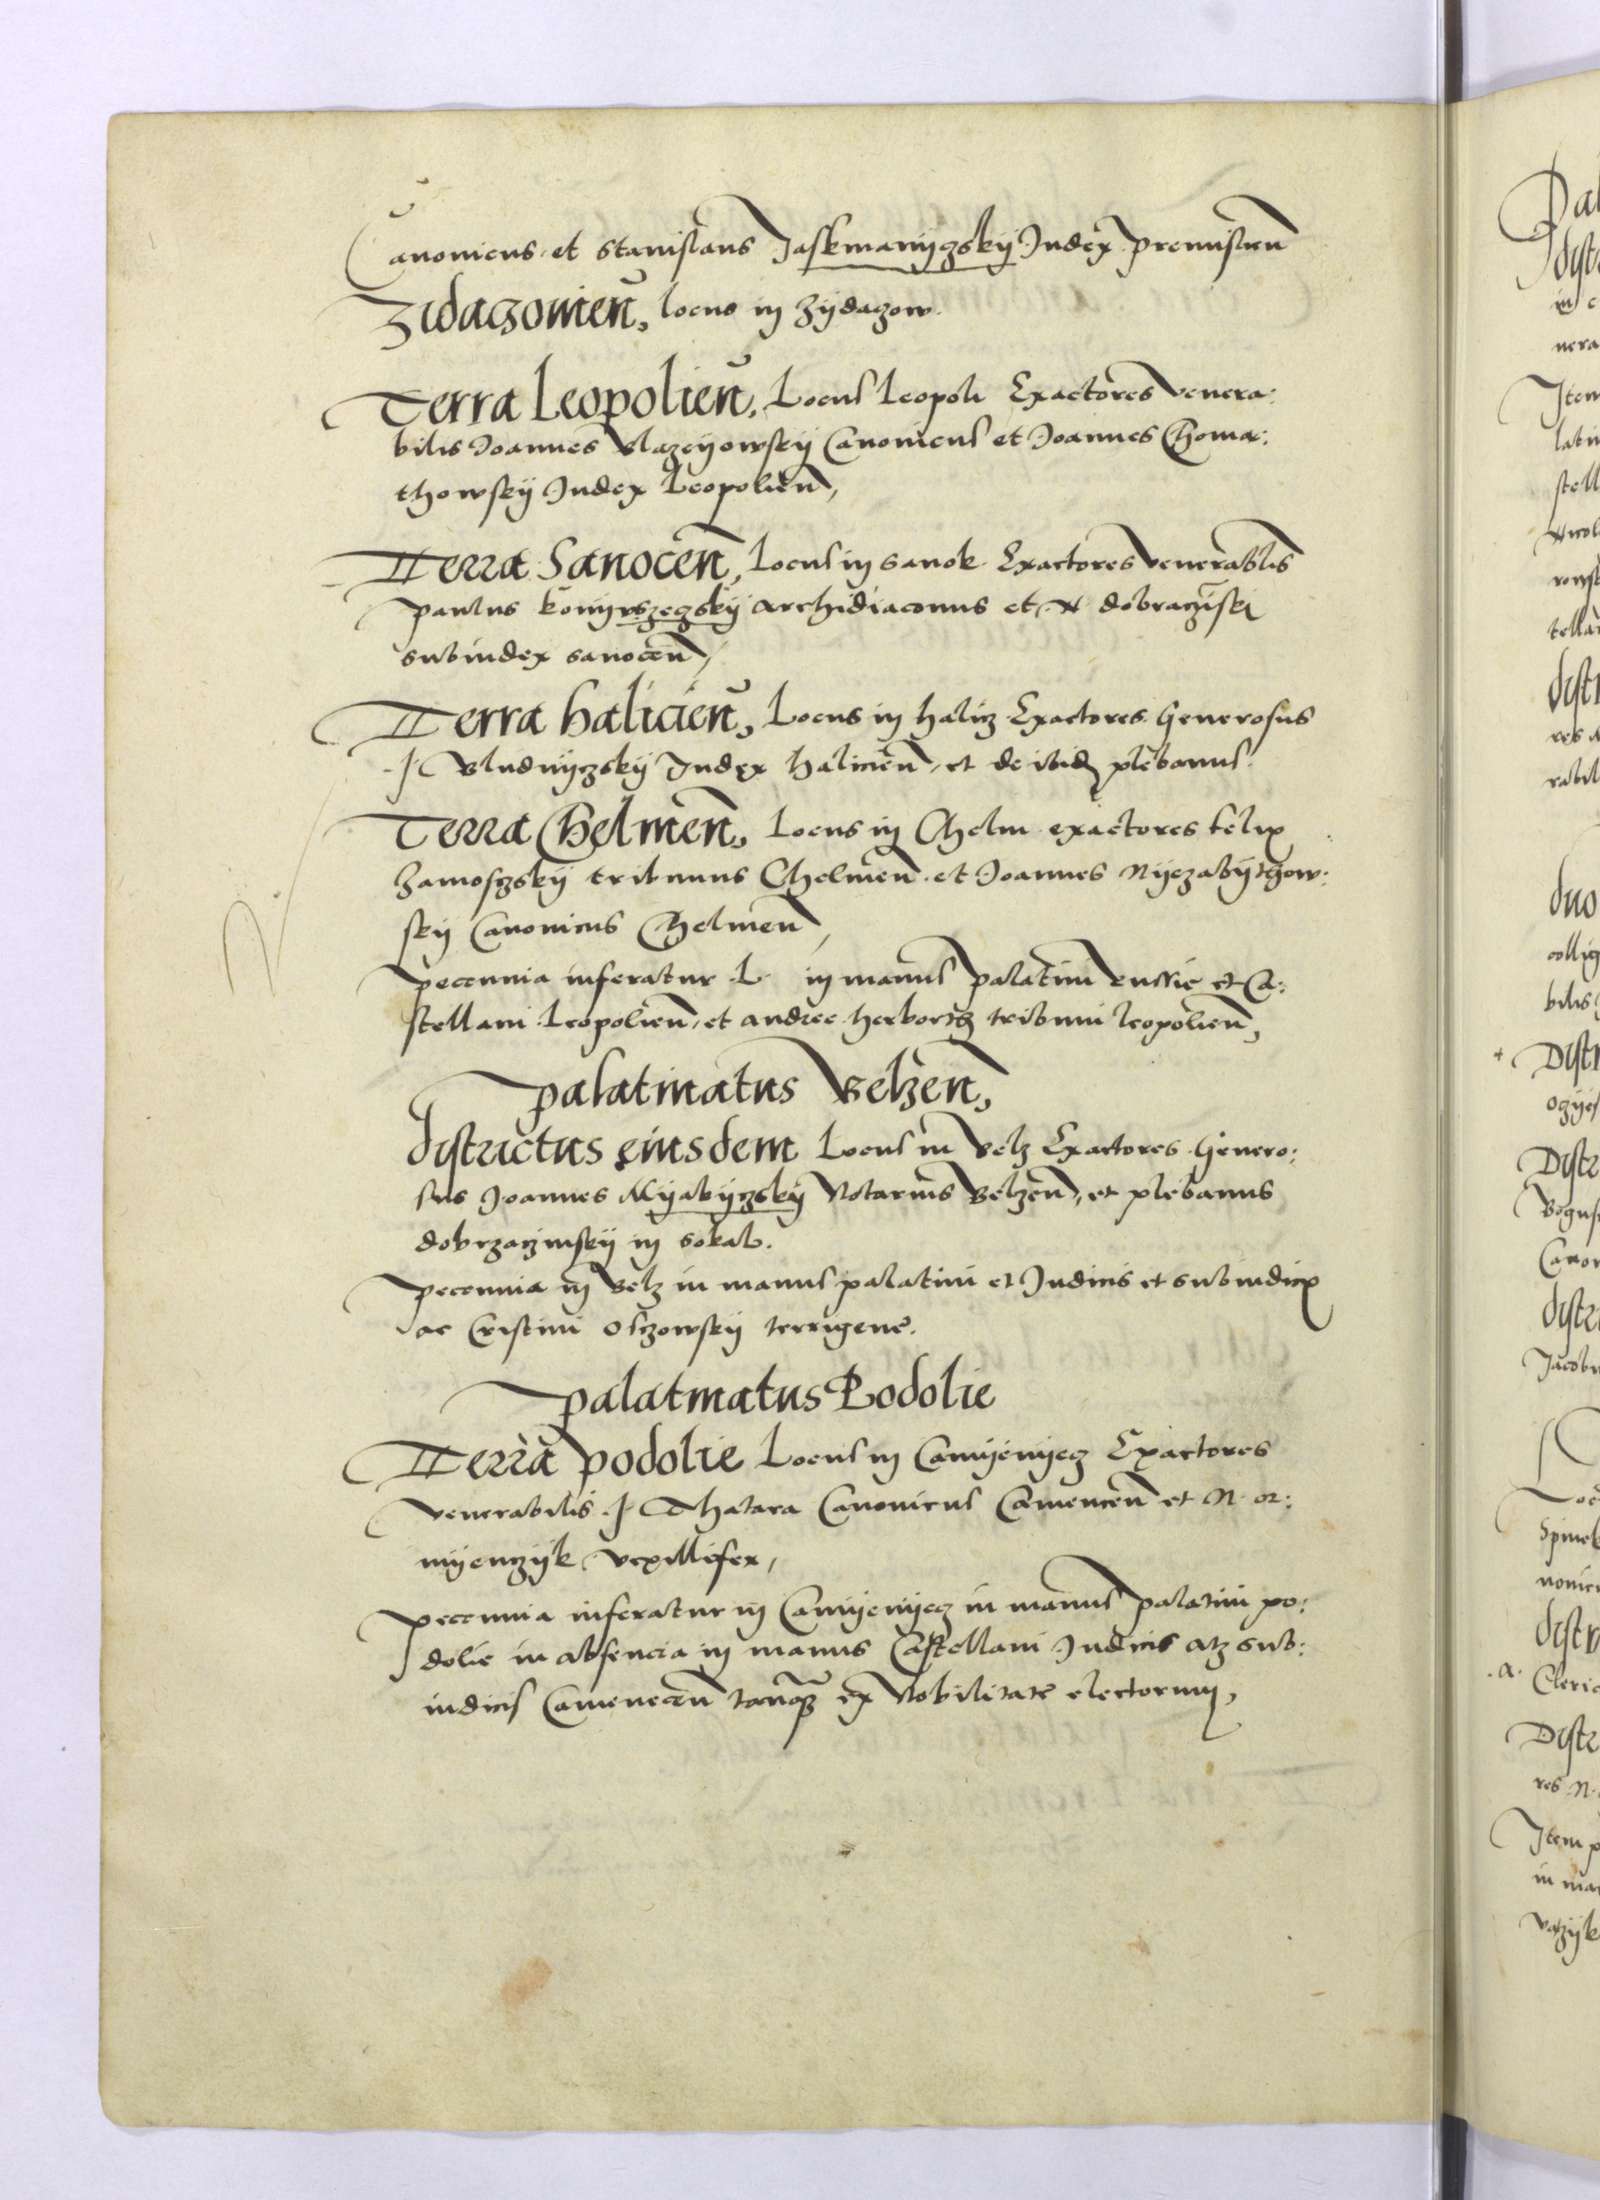 Canonicus et Stanislaus Jaskmanyczskÿ Judex premislien
Zidaczowien, locus in Zÿdaczow.
Terra Leopolien, Locus Leopoli Exactores venera:
bilis Joannes Blazeyowskÿ Canonicus et Joannes Choma:
thowskÿ Judex Leopolien,
Terra Sanocen, Locus in Sanok Exactores venerabilis
paulus archidiaconus et N
subiudex sanocen,
Terra halicien, Locus in halicz Exactores Generosus
J Bludnÿczskÿ Judex halicien, et de ibidem plebanus
Terra Chelmen, Locus in Chelm exactores felix
Zamosczskÿ tribunus Chelmen et Joannes Nÿezabÿthow:
skÿ Canonicus Chelmen,
pecunia inferatur L in manus palatini russie et Ca:
stellani Leopolien, et andree herborth tribuni leopolien,
palatinatus Belzen,
districtus eiusdem Locus in Belz Exactores Genero:
sus Joannes Notarius Belzen, et plebanus
dobrzaczinskÿ in sokal.
pecunia in Belz in manus palatini et Judicis et subiudicis
ac Cristini terrigene.
palatinatus Podolie
Terra podolie Locus in Camÿenÿecz Exactores
venerabilis J Thatara Canonicus Camencen et N or:
mÿenczÿk vexillifer,
pecunia inferatur in Camÿenÿecz in manus palatini po:
dolie in absencia in manus Castellani Judicis atq sub:
iudicis Camenecen tanq ex Nobilitate electorum,
pal
dist
in c
nera
Item
latin
stell
Nicol
tella
distr
res
rabil
duo
collig
bilis
+ Distr
Distr
Bogus
Canon
distr
Jacobu
Loc
nonic
distr
.a. Cleric
Distr
res N.
Item p
in ma